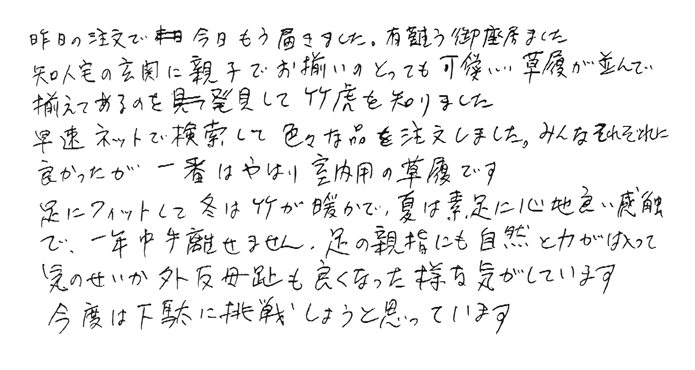 昨日の注文で今日もう届きました。有難う御座居ました
知人宅の玄関に親子でお揃いのとっても可愛いい草履が並んで
揃えてあるのを発見して竹虎を知りました
早速ネットで検索して色々な品を注文しました。みんなそれぞれに
良かったが一番はやはり室内用の草履です
足にフィットして冬は竹が暖かで、夏は素足に心地良い感触
で、一年中手離せません、足の親指にも自然と力がは入って
気のせいか外反母趾も良くなった様な気がしています
今度は下駄に挑戦しようと思っています